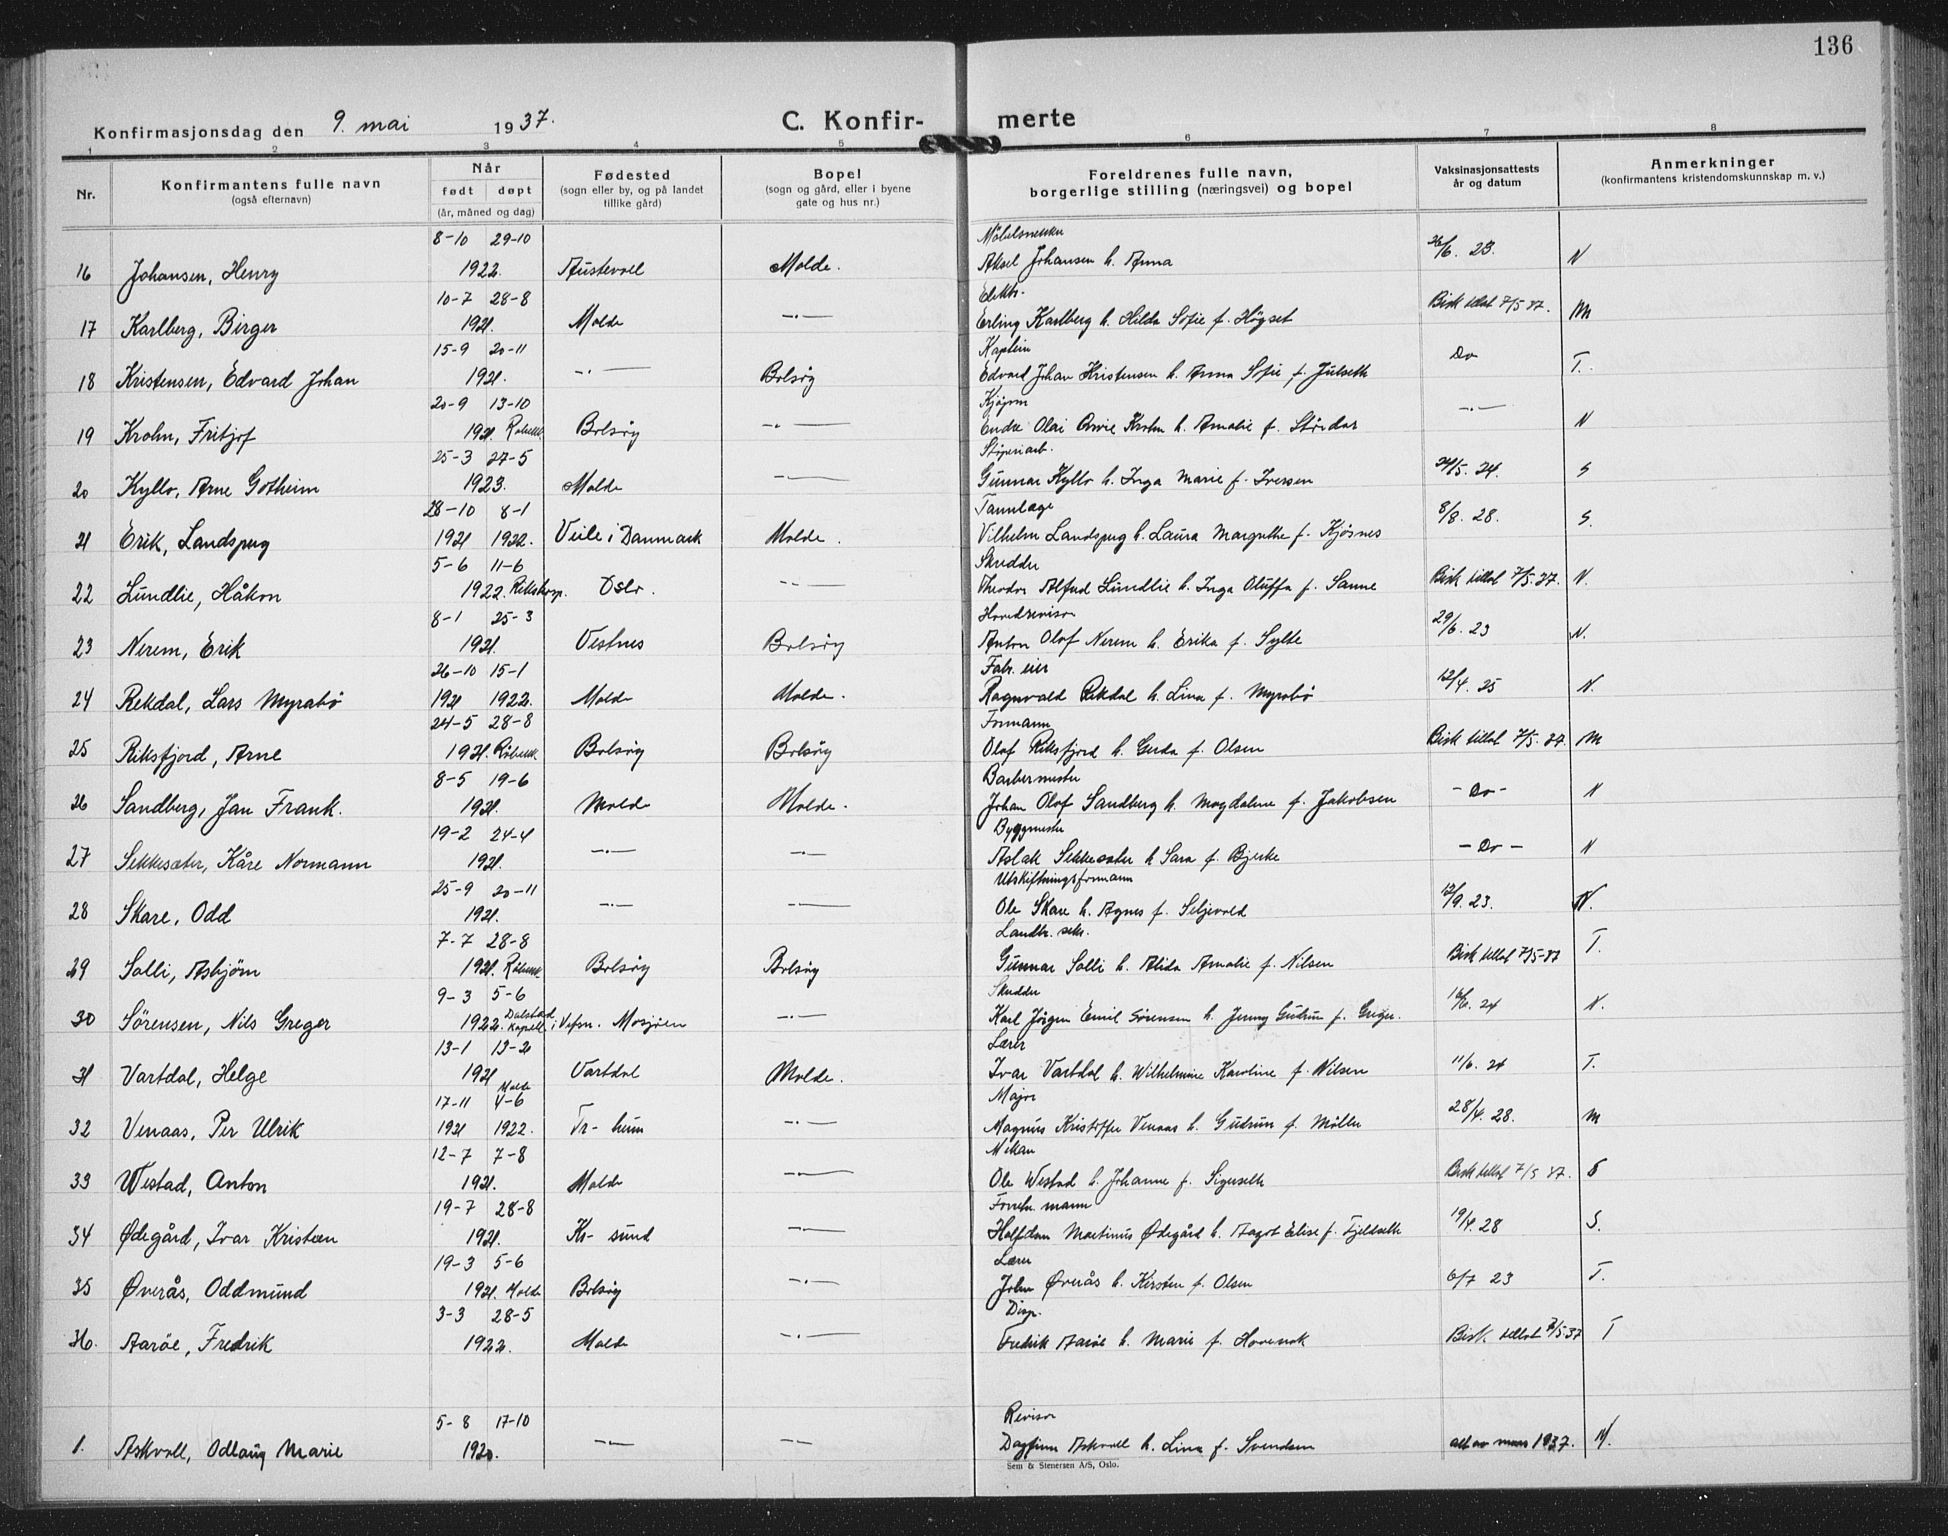 136
Konfirmasjonsdag den 9. mai 1937.
C. Konfirmerte
1 2 3 4 5 6 7 8
Nr.
Konfirmantens fulle navn
(også efternavn)
Når
født døpt
(år, måned og dag)
Fødested
(sogn eller by, og på landet
tillike gård)
Bopel
(sogn og gård, eller i byene
gate og hus nr.)
Foreldrenes fulle navn,
borgerlige stilling (næringsvei) og bopel
Vaksinasjonsattests
år og datum
Anmerkninger
(konfirmantens kristendomskunnskap m. v.)
8-10 29-10 Møbelsnekker
16 Johansen, Henry 1922. Austevoll Molde. Aksel Johansen h. Anna 26/6. 23. N
10-7 28-8 Elektr.
17 Karlberg, Birger 1921. Molde -·- Erling Karlberg h. Hilda Sofie f. Høgset Bisk tillat 7/5 37. M
15-9 20-11 Kaptein
18 Kristensen, Edvard Johan 1921. -·- Bolsøy Edvard Johan Kristensen h. Anna Sofie f. Julseth Do T.
20-9 13-10 Kjøpm
19 Krohn, Fritjof 1921. Røbekk Bolsøy -·- Endre Olai Krohn h. Amalie f. -·- N
25-3 27-5 Støperiarb.
20 Kyllo, Arne Gotheim 1923. Molde -·- Gunnar Kyllo h. Inga Marie f. Iversen 24. S
28-10 8-1 Tannlæge
21 Erik, Landsperg 1921 1922. Veile i Danmark Molde. Vilhelm Landsperg h. Laura Margrethe f. Kjøsnes 8/8. 28. S.
5-6 11-6 Skredder
22 Lundlie, Håkon 1922. Oslo. -·- Theodor Alfred Lundlie h. Inga Oluffa f. Sanne Bisk tillat 7/5. 37. N.
8-1 25-3 Hovedrevisor
23 Nerem, Erik 1921. Vestnes Bolsøy Anton Olof Nerem h. Erika f. Sylte 29/6. 23 N.
26-10 15-1 Fabr. eier
24 Rekdal, Lars Myrabø 1921 1922. Molde Molde. Ragnvald Rekdal h. Lina f. Myrabø 12/4. 25 N.
24-5 28-8 Formann
25 Riksfjord, Arne 1921. Røbekk Bolsøy Bolsøy Olaf Riksfjord h. Gerda f. Olsen Bisk tillat 7/5. 37. M
8-5 19-6 Barbermester
26 Sandberg, Jan Frank. 1921. Molde Molde. Johan Olof Sandberg h. Magdalene f. Jakobsen - Do - N
19-2 24-4 Byggmester
27 Sekkesæter, Kåre Normann 1921. -·- -·- Aslak Sekkesæter h Sara f. Bjerke - Do - N
25-9 20-11 Utskiftningsformann
28 Skare, Odd 1921. -·- -·- Ole Skare h. Agnes f. Seljevold 12/9. 23. N.
7-7 28-8 Landbr. sekr.
29 Solli, Asbjørn 1921. Røbekk Bolsøy Bolsøy Gunnar Solli h. Alida Amalie f. Nilsen Bisk tillat 7/5-37 T.
9-3 5-6 Skredder
30 Sørensen, Nils Greger 1922. Dolstad Kapell i Vefsn. Mosjøen -·- Karl Jørgen Emil Sørensen h. Jenny Gudrun f. Greger. 16/6. 24 N.
13-1 13-2 Lærer
31 Vartdal, Helge 1921 Vartdal Molde. Ivar Vartdal h. Wilhelmine Karoline f. Nilsen 11/6. 24 T.
17-11 Molde 4-6 Major
32 Venaas, Per Ulrik 1921 1922. Tr- heim -·- Magnus Kristoffer Venaas h. Gudrun f. Møller 28/4. 28. M
12-7 7-8 Mekan
33 Westad, Anton 1921. Molde -·- Ole Westad h. Johanne f. Sigerseth Bisk tillat 7/5 37. S
19-7 28-8 Forretn. mann
34 Ødegård, Ivar Kristian 1921. Kr- sund -·- Halfdan Martinus Ødegård h. Aagot Elise f. Fjeldseth 19/4. 28 S.
19-3 5-6 Lærer
35 Øverås, Oddmund 1921. Molde Bolsøy -·- John Øverås h. Kirsten f. Olsen 6/7 23 T.
3-3 28-5 Disp.
36. Aarøe, Fredrik 1922. Molde -·- Fredrik Aarøe h. Marie f. Hovenak Bisk tillat 7/5 37 T
5-8 17-10 Revisor
1. Askvoll, Odlaug Marie 1920. -·- -·- Dagfinn Askvoll h. Lina f. Svendsen att av mars 1937. N.
Sem & Stenersen A/S, Oslo.